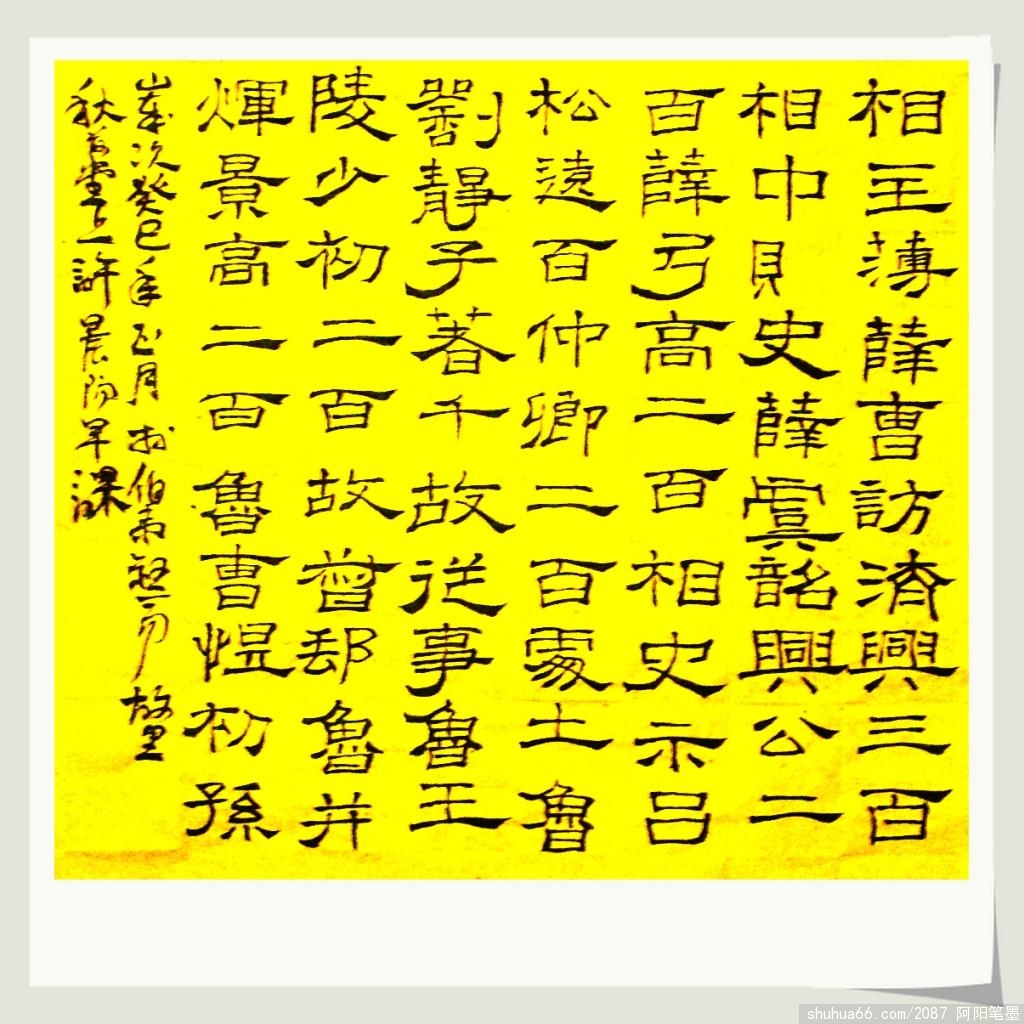 相主薄薛曹訪濟興三百
相中賊史薛虞韶興公二
百薛弓高二百相史示呂
松遠百仲卿二百處土魯
劉靜子著千故從事魯王
陵少初二百故督郵魯并
煇景高二百魯曹悝初孫
歲次癸巳年正月於伯
秋堂上許晨陽早課
shuhua66.com/2087 阿阳笔墨